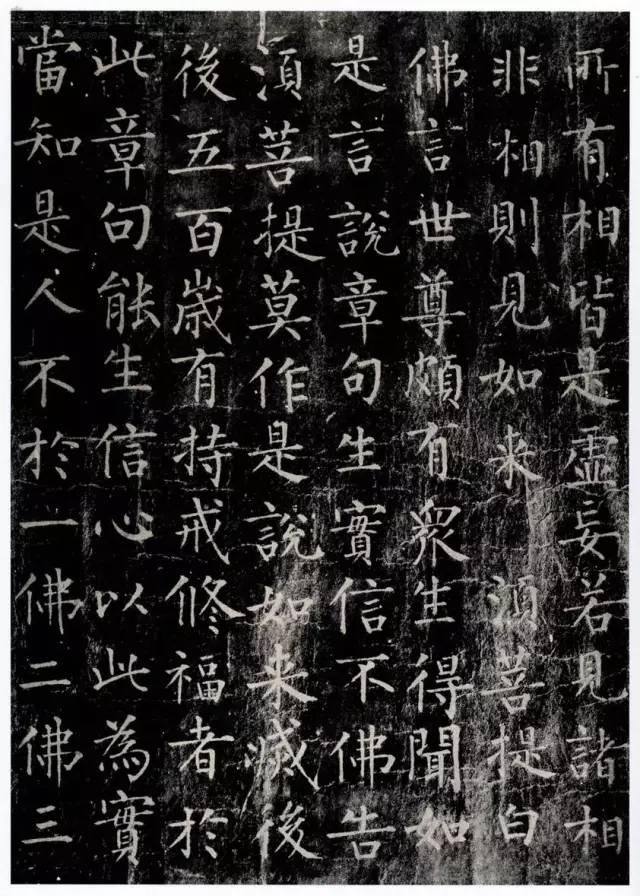 所有相皆是虛妄若見諸相
非相則見如来 湏菩提白
佛言世尊頗有衆生得聞如
是言說章句生實信不佛告
湏菩提莫作是說如来滅後
後五百歲有持戒修福者於
此章句能生信心以此為實
當知是人不於一佛二佛三